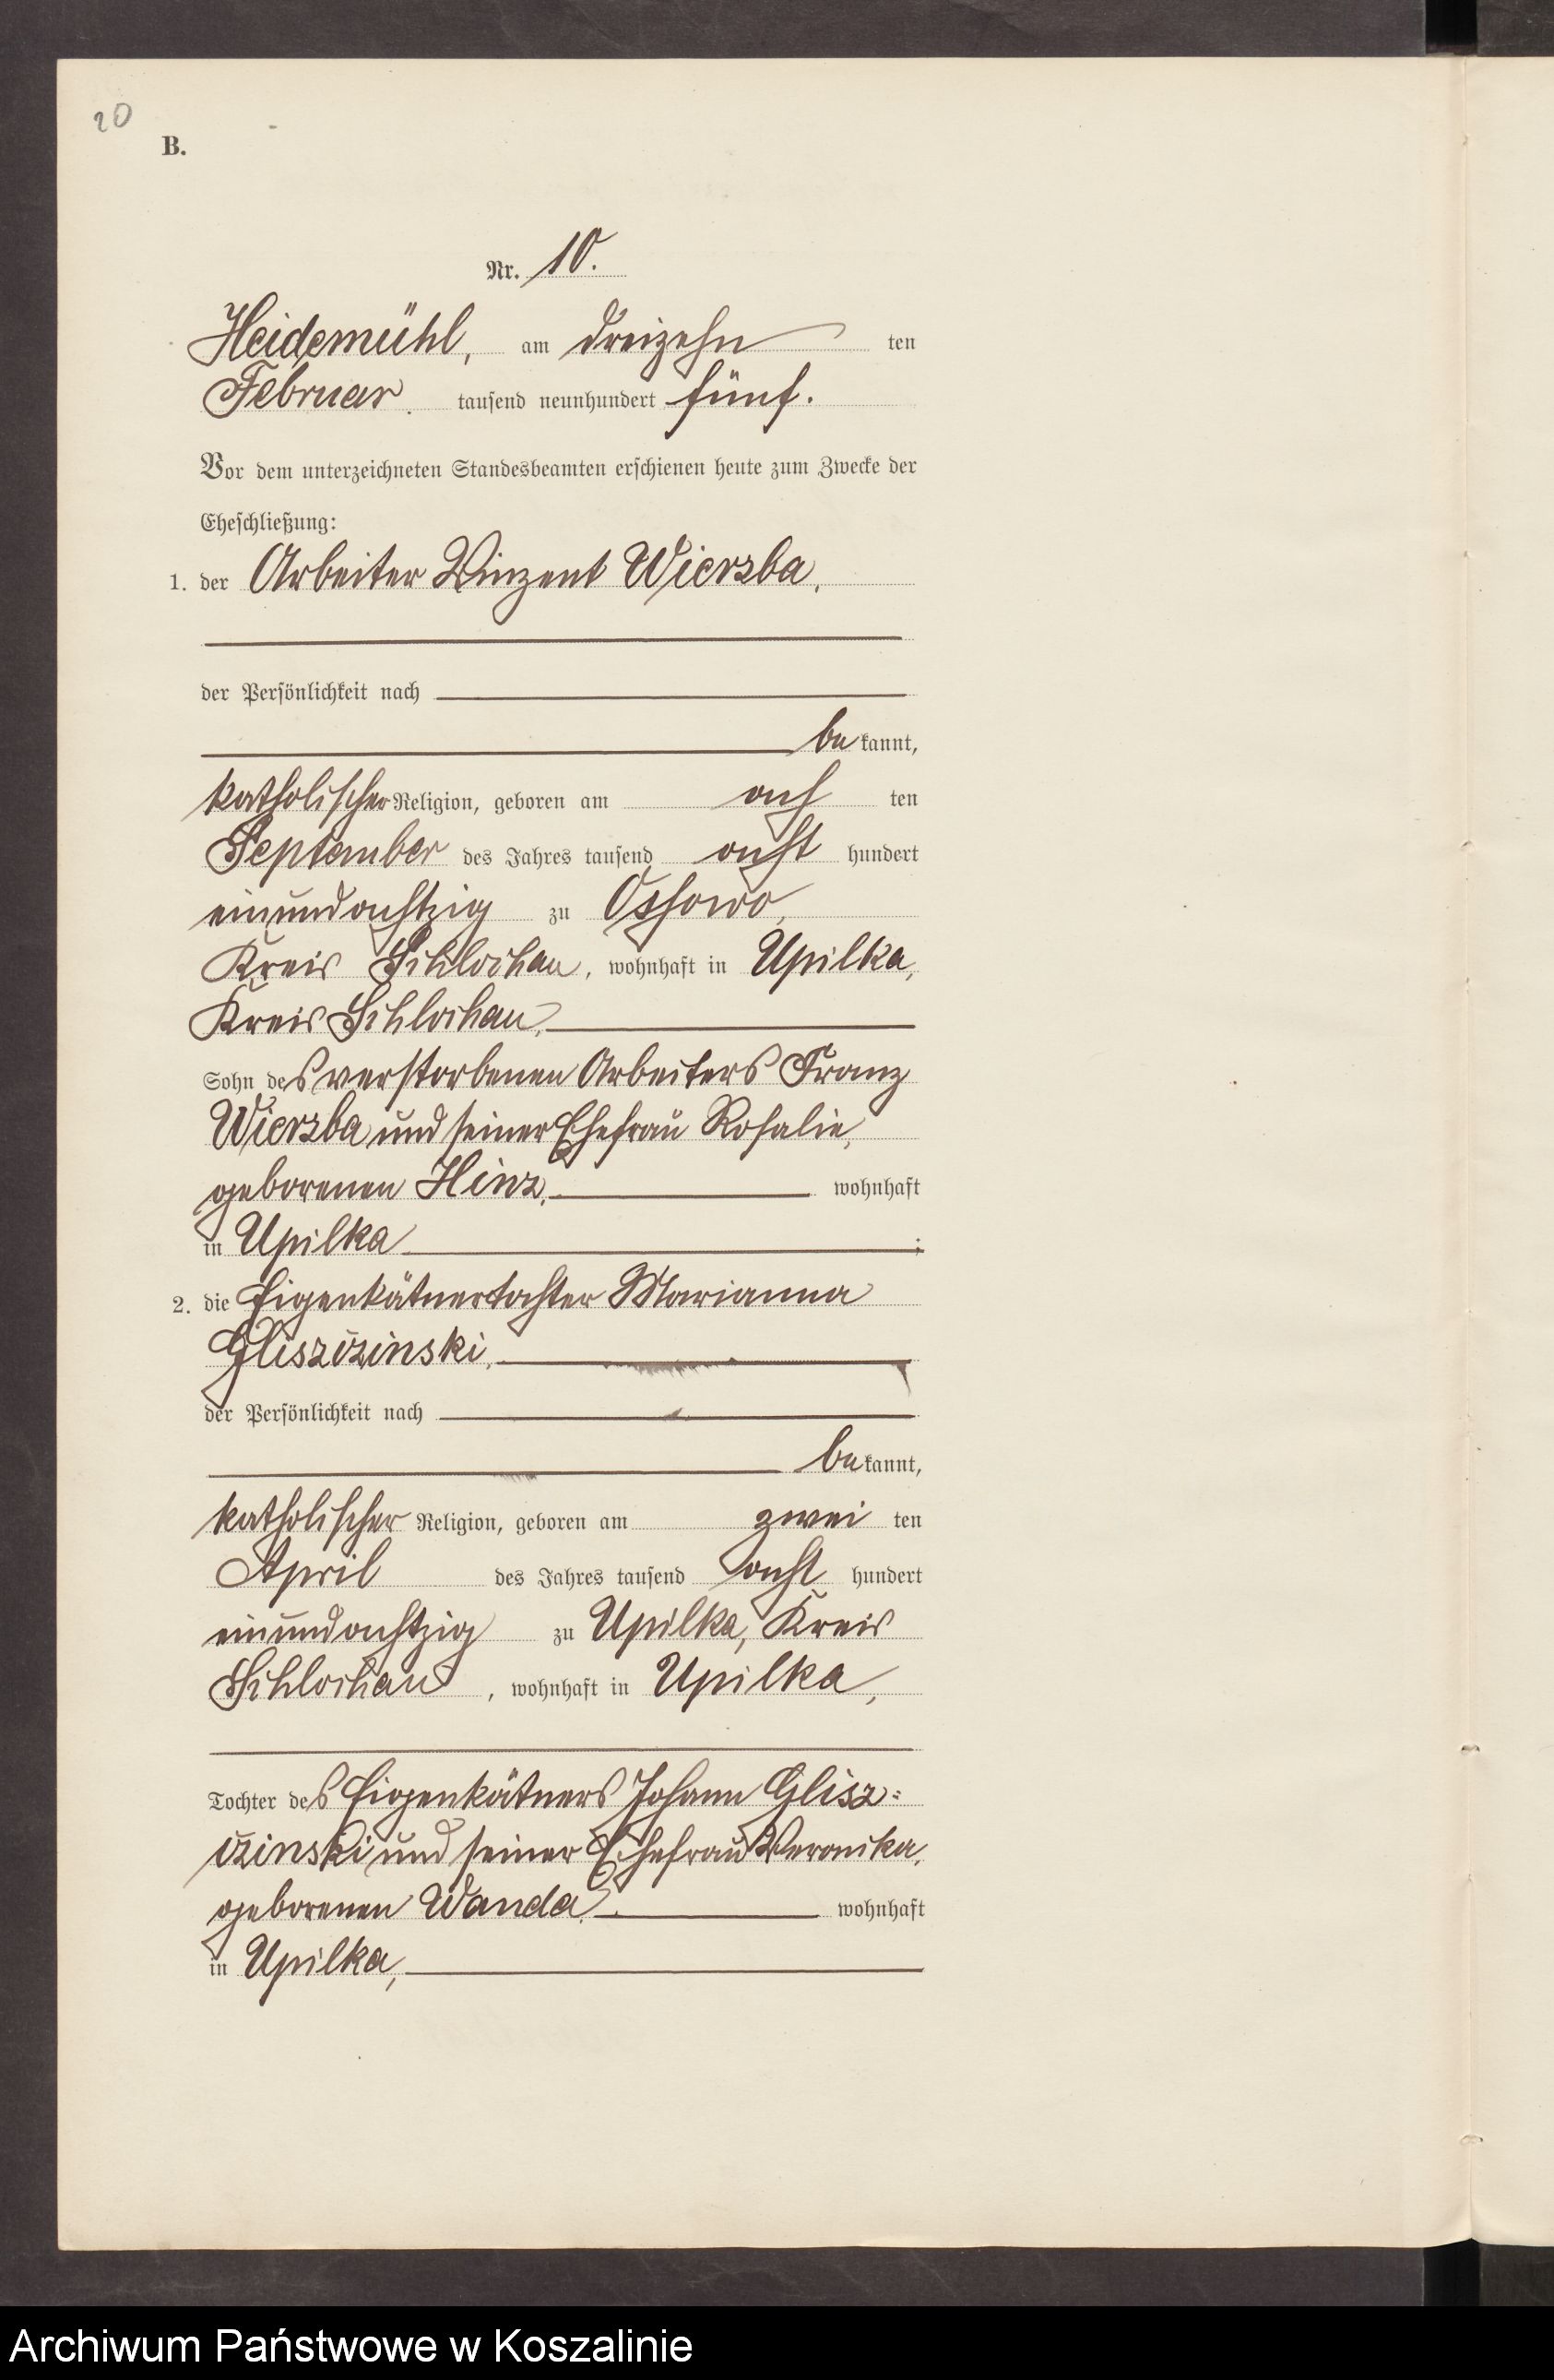 20
B.
Nr. 10.
Heidemühl, am dreizehn ten
Februar tausend neunhundert fünf.
Vor dem unterzeichneten Standesbeamten erschienen heute zum Zwecke der
Eheschließung:
1. der Arbeiter Vinzent Wierzba,
der Persönlichkeit nach
be kannt,
katholischer Religion, geboren am ach ten
September des Jahres tausend acht hundert
einundachtzig zu Ossowo,
Kreis Schlochau, wohnhaft in Upilka,
Kreis Schlochau,
Sohn des verstorbenen Arbeiters Franz
Wierzba und seiner Ehefrau Rosalie,
geborenen Hinz, wohnhaft
in Upilka ;
2. die Eigenkätnertochter Marianna
Gliszczinski,
der Persönlichkeit nach
be kannt,
katholischer Religion, geboren am zwei ten
April des Jahres tausend acht hundert
einundachtzig zu Upilka, Kreis
Schlochau, wohnhaft in Upilka,
Tochter des Eigenkätners Johann Glisz=
czinski und seiner Ehefrau Veronika,
geborenen Wanda, wohnhaft
in Upilka,
Archiwum Państwowe w Koszalinie